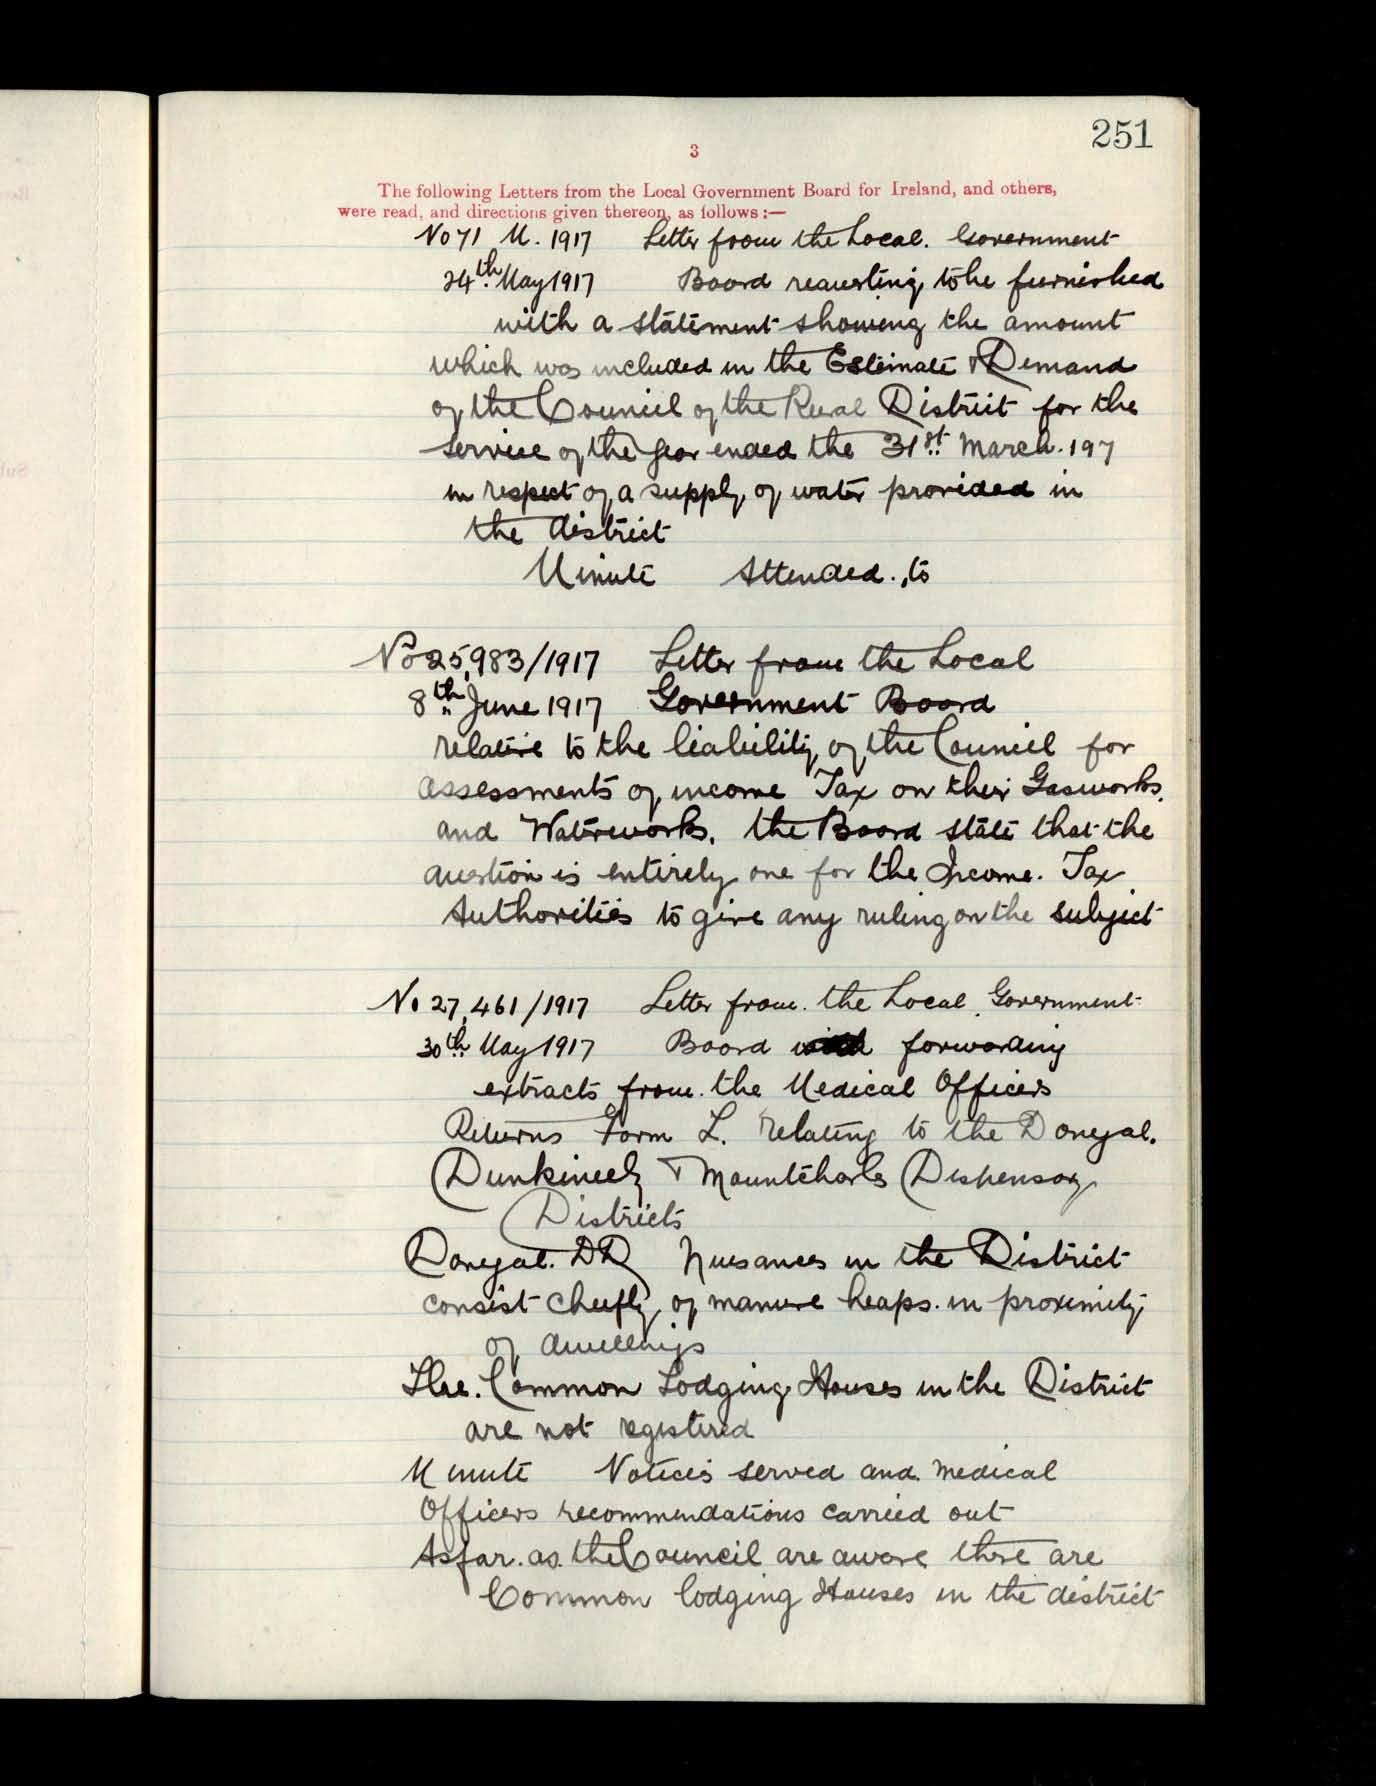 251
3
The following Letters from the Local Government Board for Ireland, and others,
were read, and directions given thereon, as follows:—
No 71 M. 1917 Letter from the Local. Government
24th May 1917 Board requesting to be furnished
with a statement showing the amount
which was included in the Estimate & Demand
of the Council of the Rural District for the
service of the year ended the 31st March. 197
in respect of a supply of water provided in
the district
Minute Attended. to
No 25,983/1917 Letter from the Local
8th June 1917 Government Board
relative to the liability of the Council for
assessments of income Tax on their Gasworks.
and Waterworks. the Board state that the
question is entirely one for the Income. Tax
Authorities to give any ruling on the subject
No 27,461/1917 Letter from. the Local Government
30th May 1917 Board forwarding
extracts from. the Medical Officers
Returns Form L. relating to the Donegal.
Dunkineely & Mountcharles Dispensary
Districts
Donegal. DD Nuisances in the District
consist chiefly of manure heaps. in proximity
of dwellings
The. Common Lodging Houses in the District
are not registered
Minute Notices served and medical
Officers recommendations carried out
As far. as. the Council are aware there are
Common lodging Houses in the district